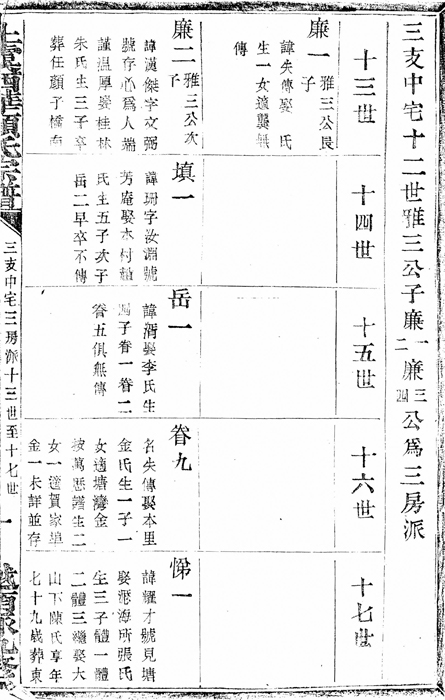 三支中宅十二世雅三公子廉一二廉三四公為三房派
十三世
十四世
十五世
十六世
十七世
廉一
雅三公長子
諱失傳娶 氏
生一女適龔無
傳
廉二
雅三公次子
諱漢傑字文弼
號存心為人端
謹温厚娶桂林
朱氏生三子卒
葬任顏子橋南
填一
諱珊字汝淵號
芳庵娶本村趙
氏生五子次子
岳二早卒不傳
岳一
諱 娶李氏生
四子眷一眷二
眷五俱無傳
眷九
名失傳娶本里
金氏生一子一
女適塘灣金
按萬懋譜生二
女一適賀家埠
金一未詳並存
悌一
諱耀才號見塘
娶瀝海所張氏
生三子體一體
二體三繼娶大
山下陳氏享年
七十九歲葬東
顏氏宗譜
三支中宅三房派十三世至十七世
一